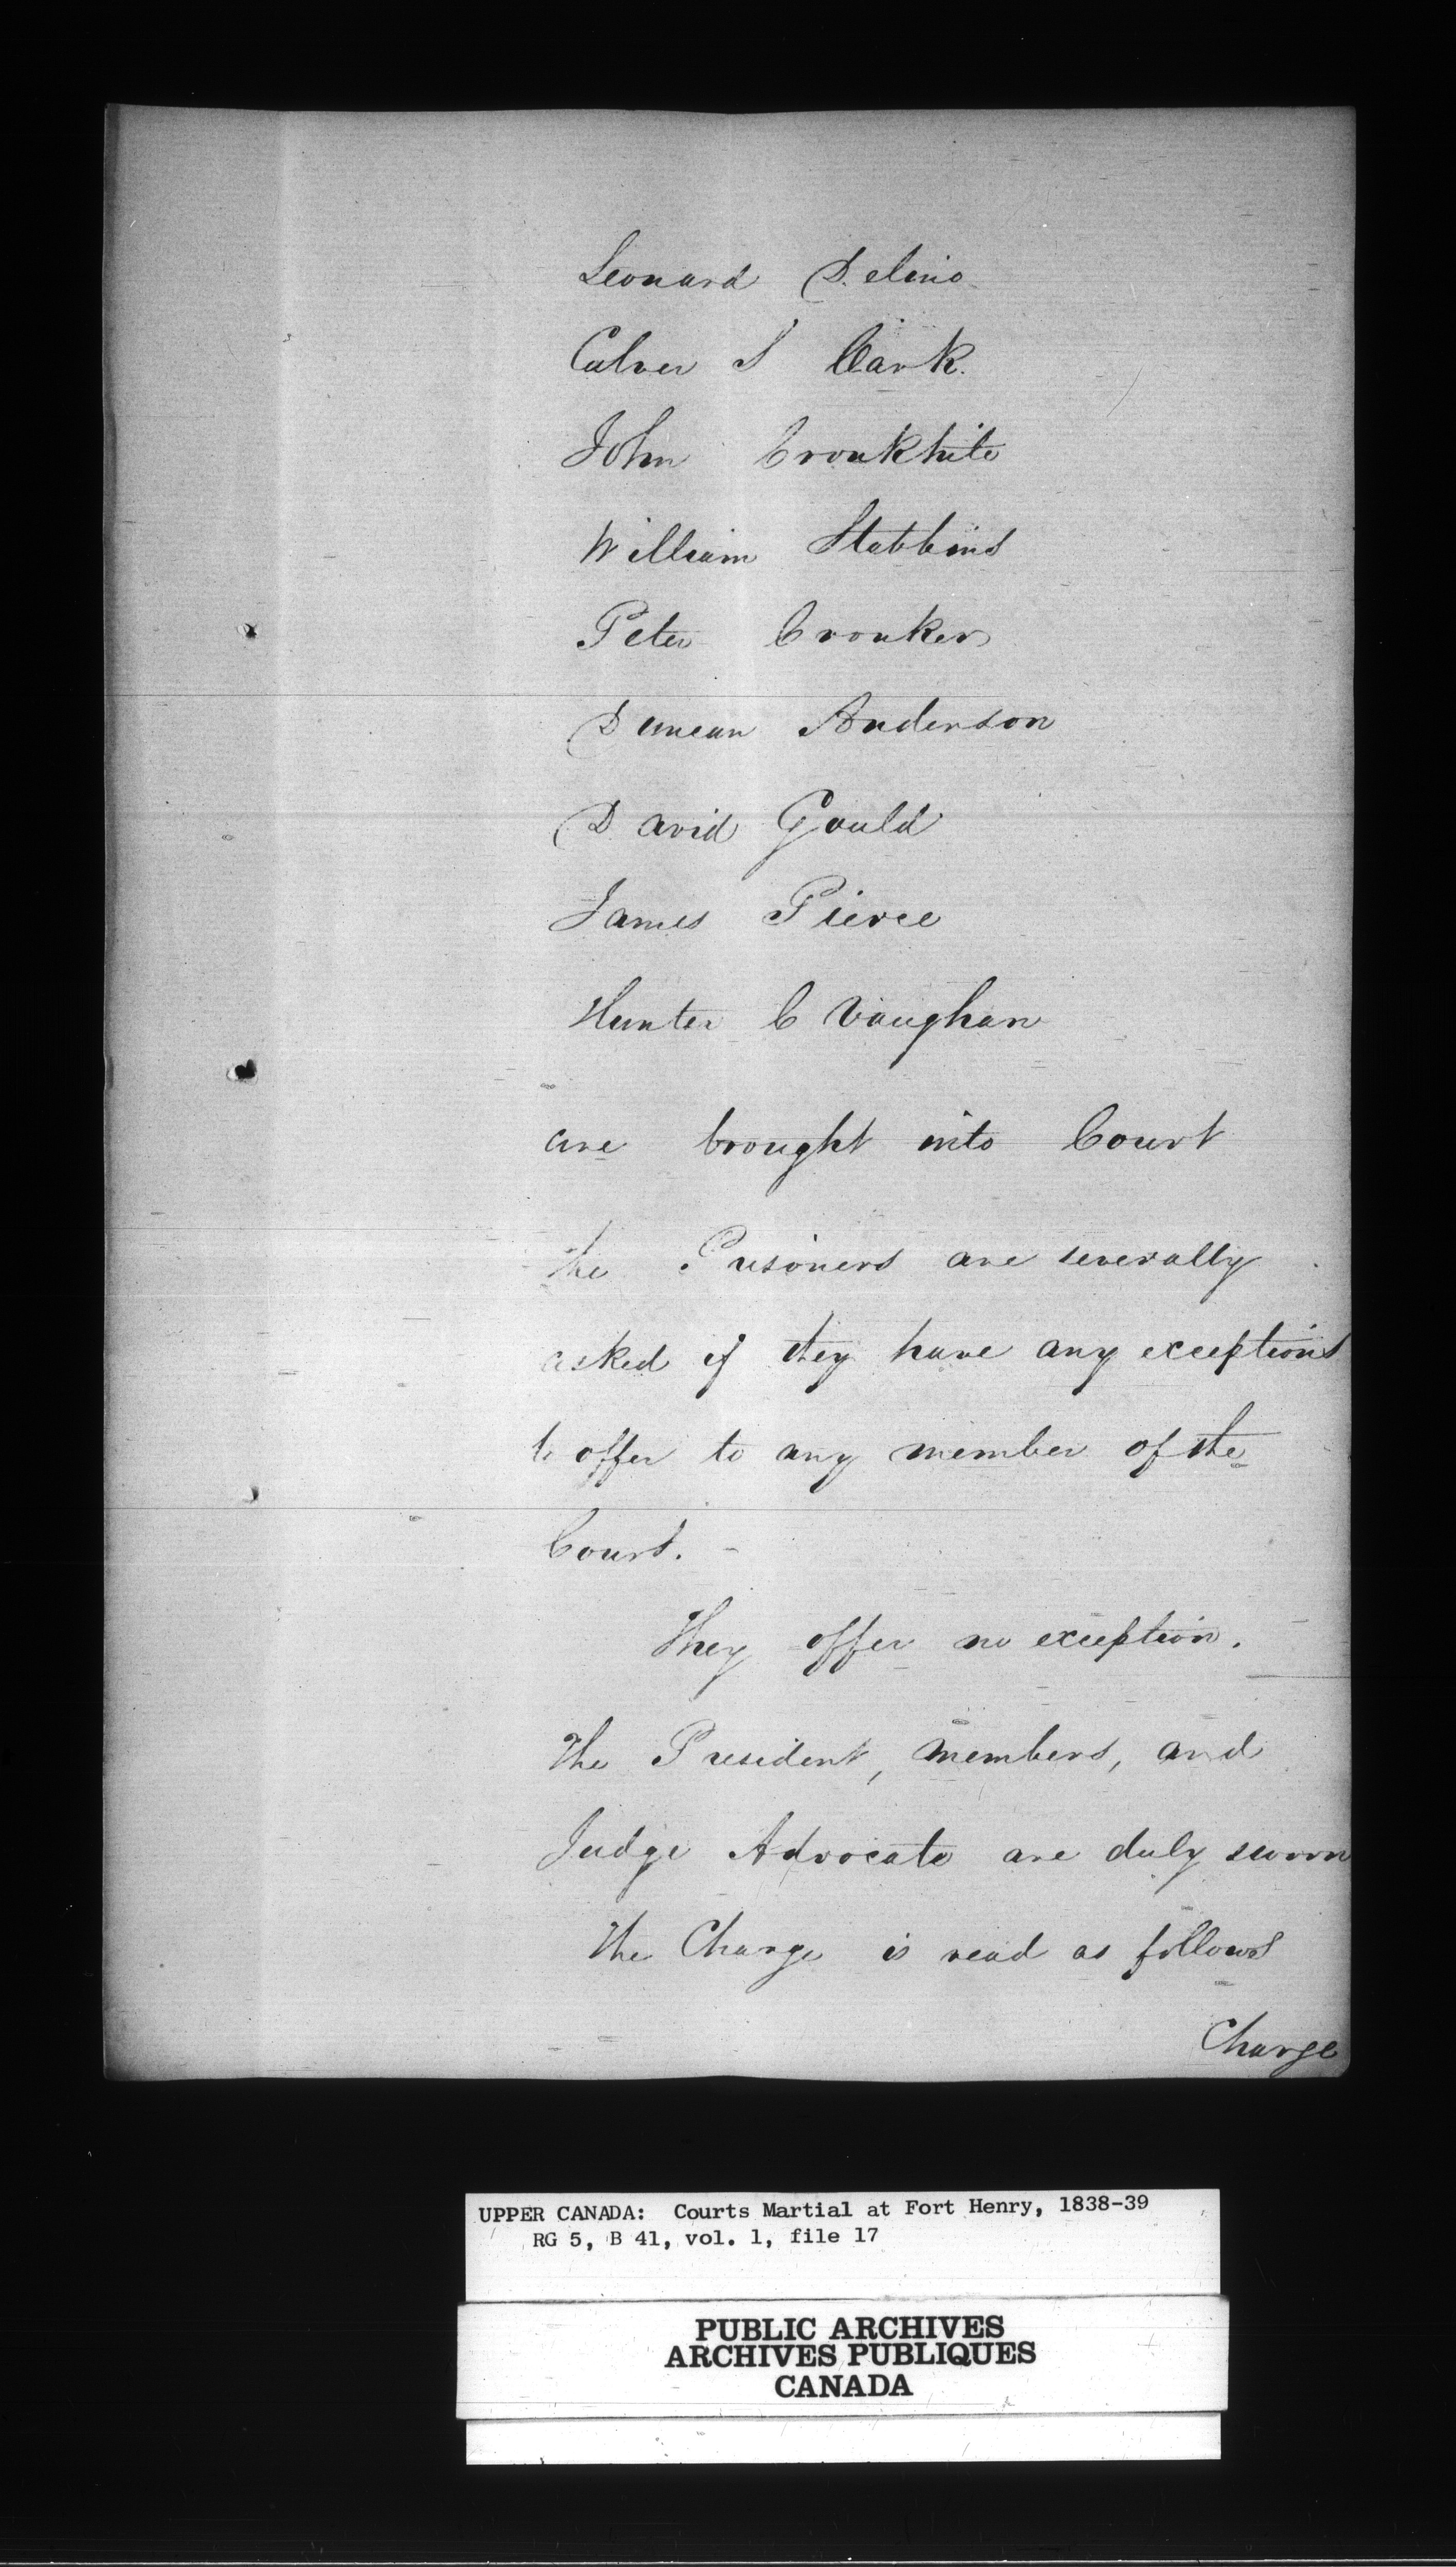 Leonard Delino
Culver S Clark.
John Cronkhite
William Stebbins
Peter Cronker
Duncan Anderson
David Gould
James Pierce
Hunter C Vaughan
are brought into Court
the Prisoners are severally
asked if they have any exceptions
to offer to any member of the
Court. -
They offer no exception.
The President, members, and
Judge Advocate are duly sworn
The Charge is read as follows
Charge
UPPER CANADA: Courts Martial at Fort Henry, 1838-39
RG 5, B 41, vol. 1, file 17
PUBLIC ARCHIVES
ARCHIVES PUBLIQUES
CANADA